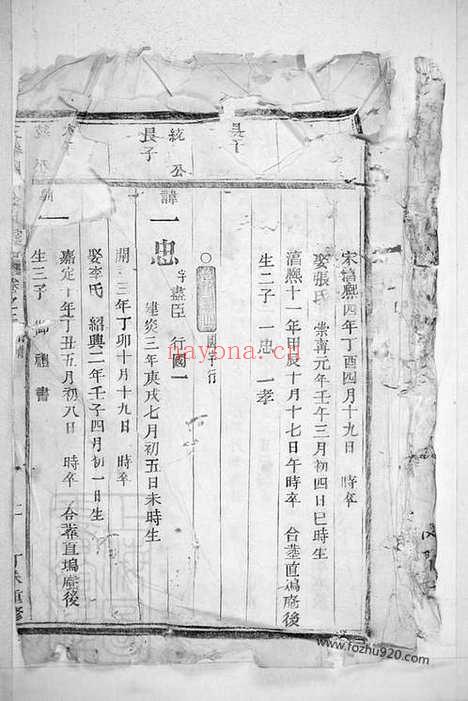 長子
宋淳熙四年丁酉四月十九日 時卒
娶張氏 崇寧元年壬午三月初四日巳時生
淳熙十一年甲辰十月十七日午時卒 合塟直塢庵後
生二子 一忠 一孝
國字行
統公
長子
諱一忠 字盡臣 行國一
建炎三年庚戌七月初五日未時生
開 三年丁卯十月十九日 時卒
娶李氏 紹興二年壬子四月初一日生
嘉定十年丁丑五月初八日 時卒 合塟直塢庵後
生三子 禮 書
nayona.cn
www.fozhu920.com